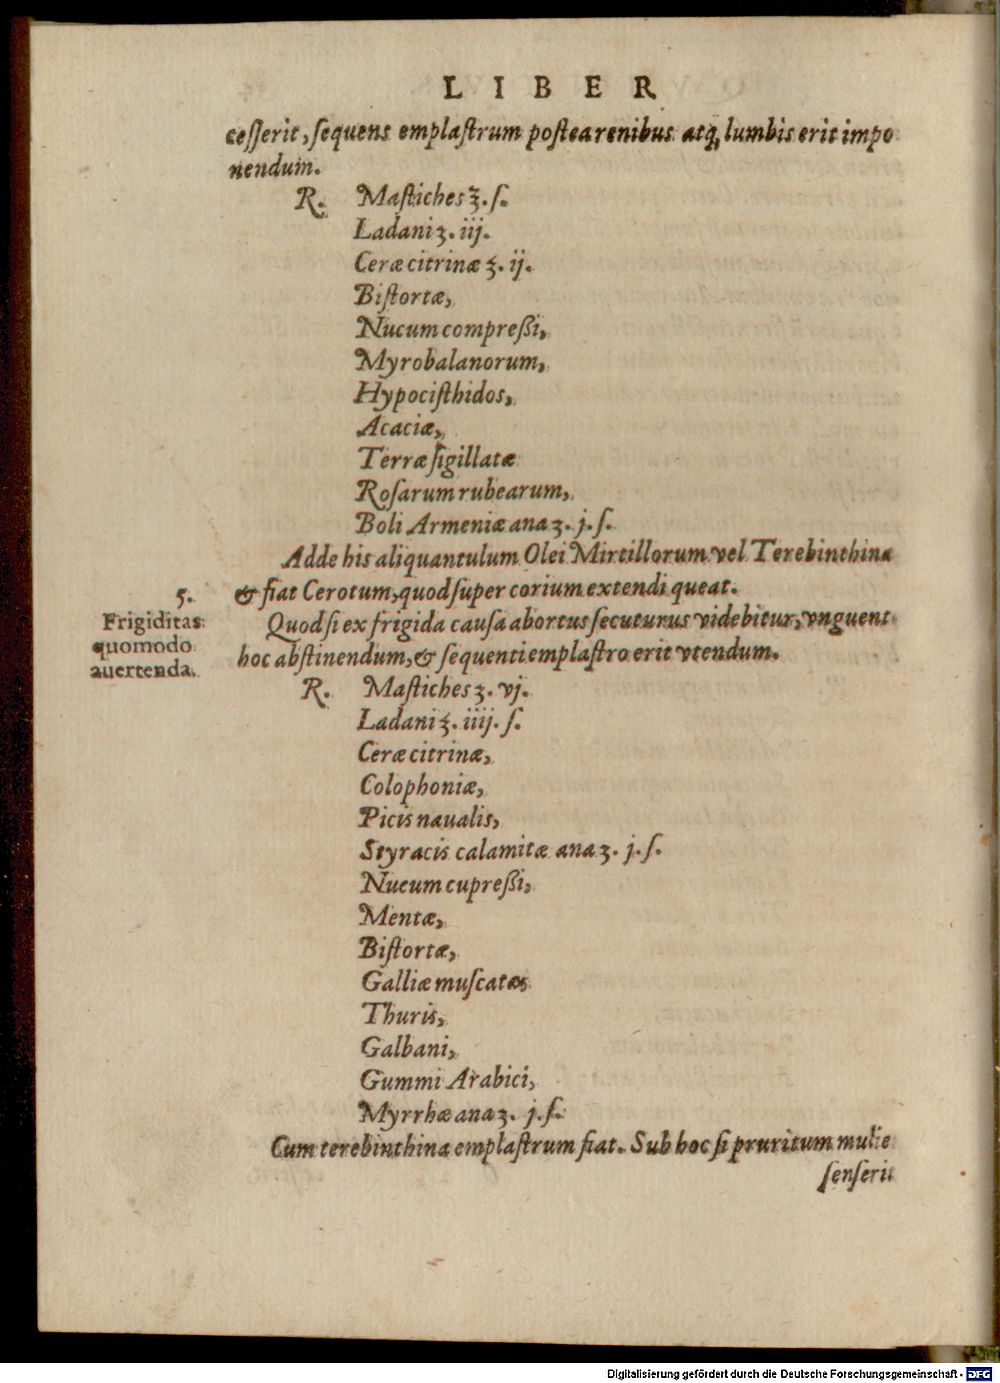 LIBER
cesserit, sequens emplastrum postea renibus atq; lumbis erit impo
nendum.
R. Mastiches ʒ. ſ.
Ladani ʒ. iij.
Ceræ citrinæ ℥. ij.
Bistortæ,
Nucum compreßi,
Myrobalanorum,
Hypocisthidos,
Acaciæ,
Terræ sigillatæ
Rosarum rubearum,
Boli Armeniæ ana ʒ. j. ſ.
Adde his aliquantulum Olei Mirtillorum vel Terebinthinæ
& fiat Cerotum, quod super corium extendi queat.
5.
Frigiditas
quomodo
auertenda.
Quod si ex frigida causa abortus secuturus videbitur, vnguent
hoc abstinendum, & sequenti emplastro erit vtendum.
R. Mastiches ʒ. vj.
Ladani ℥. iiij. ſ.
Ceræ citrinæ,
Colophoniæ,
Picis naualis,
Styracis calamitæ ana ʒ. j. ſ.
Nucum cupreßi,
Mentæ,
Bistortæ,
Galliæ muscatæ
Thuris,
Galbani,
Gummi Arabici,
Myrrhæ ana ʒ. j. ſ.
Cum terebinthina emplastrum fiat. Sub hoc si pruritum mulie
senserit
Digitalisierung gefördert durch die Deutsche Forschungsgemeinschaft - DFG